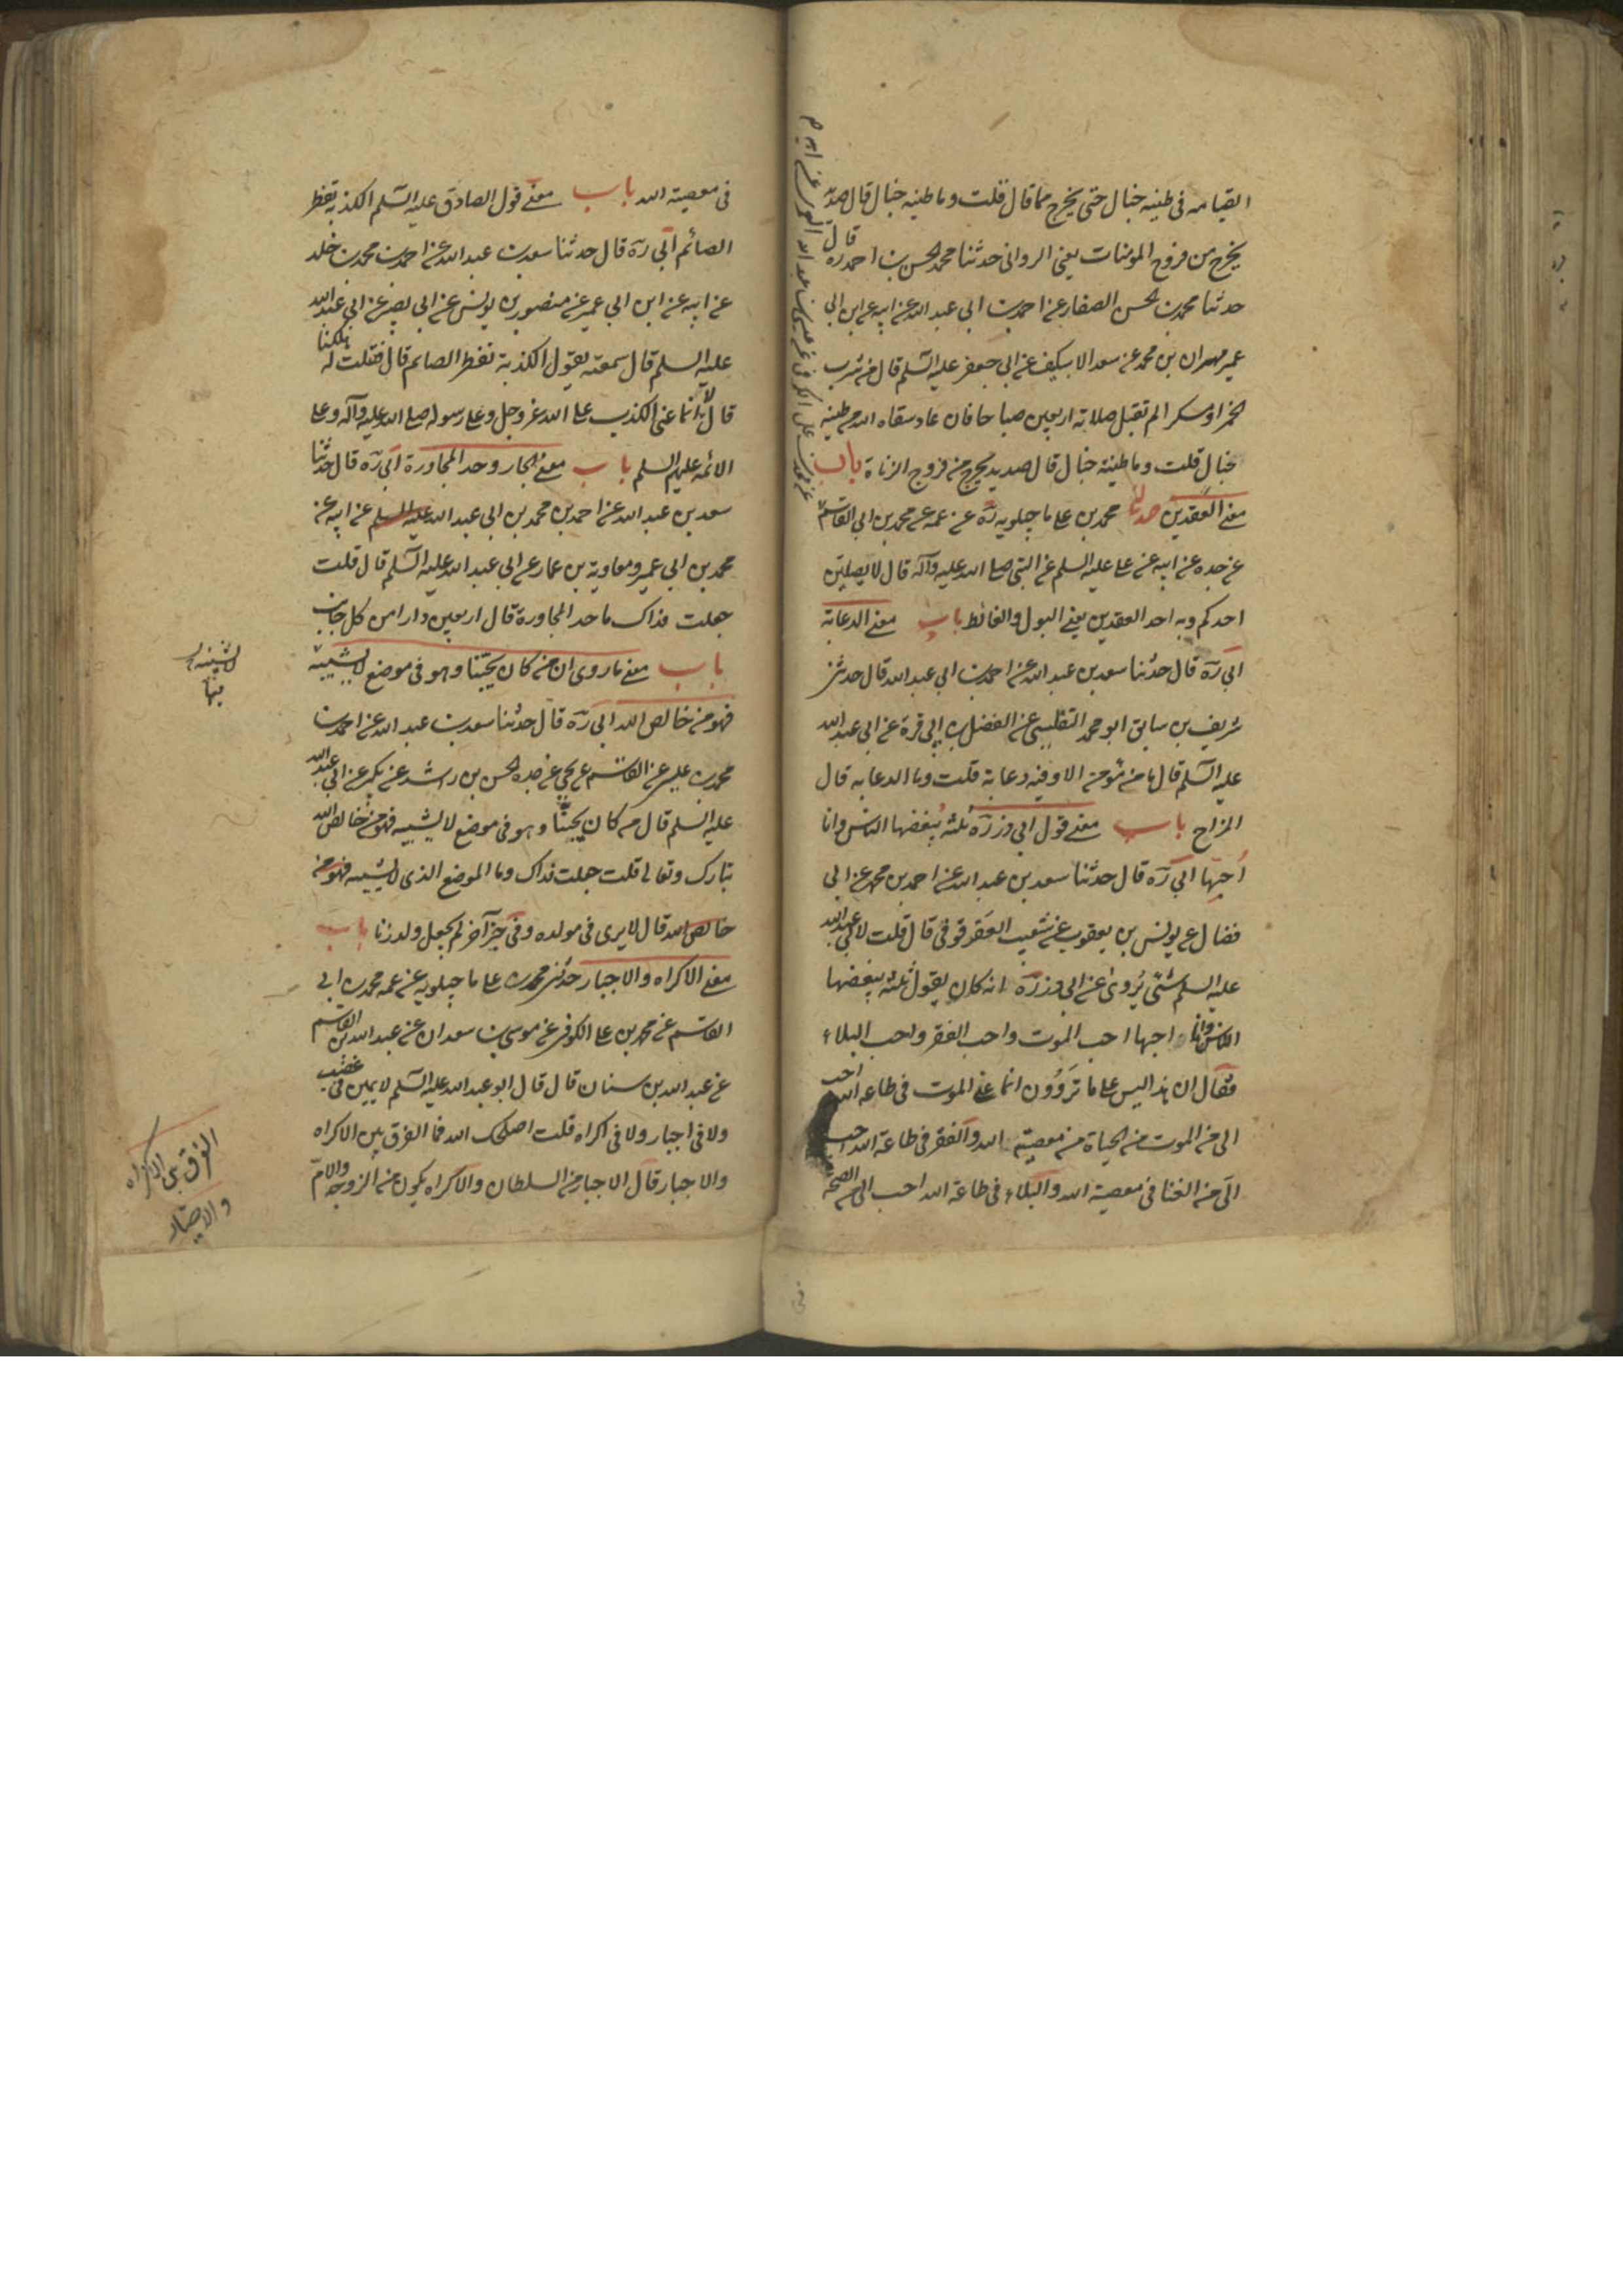 القيامه فى طينه خبال حتى يخرج مما قال قلت وما طينه خبال قال صديد
يخرج من فروج المومنات يعنى الزوانى حدثنا محمد بن الحسن بن احمد ره قال
حدثنا محمد بن الحسن الصفار عن احمد بن ابى عبد الله عن ابيه عن ابن ابى
عمير مهران بن محمد عن سعد الاسكيف عن ابى جعفر عليه السلم قال من شرب
الخمر او مسكرا لم تقبل صلاته اربعين صباحا فان عاد سقاه الله من طينه
خبال قلت وما طينة خبال قال صديد يخرج من فروج الزناة باب
معنى العقدين حدثنا محمد بن على ماجيلويه ره عن عمه عن محمد بن ابى القاسم
عن جده عن ابيه عن على عليه السلم عن النبى صلى الله عليه وآله قال لا يصلين
احدكم وبه احد العقدين يعنى البول والغائط باب معنى الدعابة
ابى ره قال حدثنا سعد بن عبد الله عن احمد بن ابى عبد الله قال حدثنى
شريف بن سابق ابو محمد التفليسى عن الفضل بن ابى قرة عن ابى عبد الله
عليه السلم قال ما من مؤمن الا وفيه دعابة قلت وما الدعابه قال
المزاح باب معنى قول ابى ذر ره ثلثه يبغضها الناس وانا
احبها ابى ره قال حدثنا سعد بن عبد الله عن احمد بن محمد عن ابى
فضال عن يونس بن يعقوب عن شعيب العقرقوفى قال قلت لابى عبد الله
عليه السلم شئ يروى عن ابى ذر ره انه كان يقول ثلثه يبغضها
الناس وانا احبها احب الموت واحب الفقر واحب البلاء
فقال ان هذا ليس على ما تروون انما عنى الموت فى طاعه الله احب
الى من الموت من الحياة من معصيته الله والفقر فى طاعة الله احب
الى من الغنا فى معصية الله والبلاء فى طاعة الله احب الى من الصحة
فى
فى معصية الله باب معنى قول الصادق عليه السلم الكذبه تفطر
الصائم ابى ره قال حدثنا سعد بن عبد الله عن احمد بن محمد بن خلد
عن ابيه عن ابن ابى عمير عن منصور بن يونس عن ابى بصير عن ابى عبد الله
عليه السلم قال سمعته يقول الكذبة تفطر الصائم قال فقلت له هلكنا
قال لا انما عنى الكذب على الله عز وجل وعلى رسوله صلى الله عليه وآله وعلى
الائمه عليهم السلم باب معنى الجار وحد المجاورة ابى ره قال حدثنا
سعد بن عبد الله عن احمد بن محمد بن ابى عبد الله عليه السلم عن ابيه عن
محمد بن ابى عمير ومعاوية بن عمار عن ابى عبد الله عليه السلم قال قلت
جعلت فداك ما حد المجاورة قال اربعين دارا من كل جانب
باب معنى ما روى ان من كان يحبنا وهو فى موضع لا يشينه
فهو من خالص الله ابى ره قال حدثنا سعد بن عبد الله عن احمد بن
محمد بن عيسى عن القاسم عن يحيى عن جده الحسن بن راشد عن بكير عن ابى عبد الله
عليه السلم قال من كان يحبنا وهو فى موضع لا يشينه فهو من خالص الله
تبارك وتعالى قلت جعلت فداك وما الموضع الذى لا يشينه فهو من
خالص الله قال لا يرى فى مولده وفى خبر آخر لم يجعل ولد زنا باب
معنى الاكراه والاجبار حدثنى محمد بن على ماجيلويه عن عمه محمد بن ابى
القاسم عن محمد بن على الكوفى عن موسى بن سعدان عن عبد الله بن القاسم
عن عبد الله بن سنان قال قال ابو عبد الله عليه السلم لا يمين فى غضب
ولا فى اجبار ولا فى اكراه قلت اصلحك الله فما الفرق بين الاكراه
والاجبار قال الاجبار من السلطان والاكراه يكون من الزوجه والام
الفرق بين الاكراه